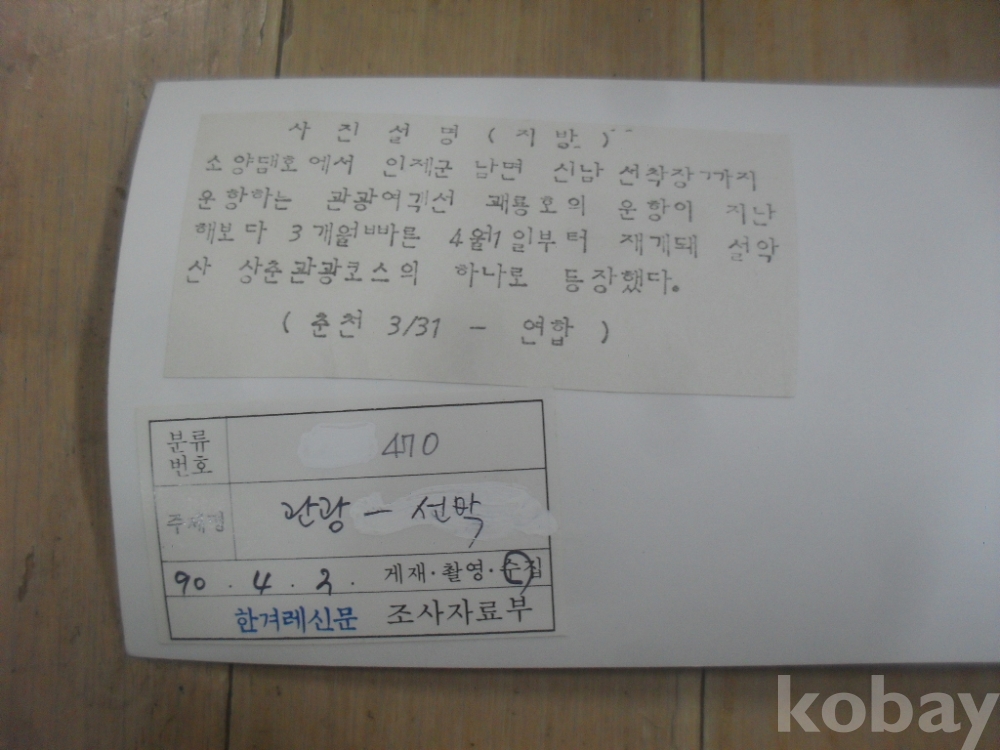 사 진 설 명 ( 지 방 )
소양댐호에서 인제군 남면 신남 선착장까지
운항하는 관광여객선 쾌룡호의 운항이 지난
해보다 3개월빠른 4월1일부터 재개돼 설악
산 상춘관광코스의 하나로 등장했다.
( 춘천 3/31 - 연합 )
분류
번호 470
주제명 관광 - 선박
90 . 4 . 2 . 게재·촬영·수집
한겨레신문 조사자료부
kobay